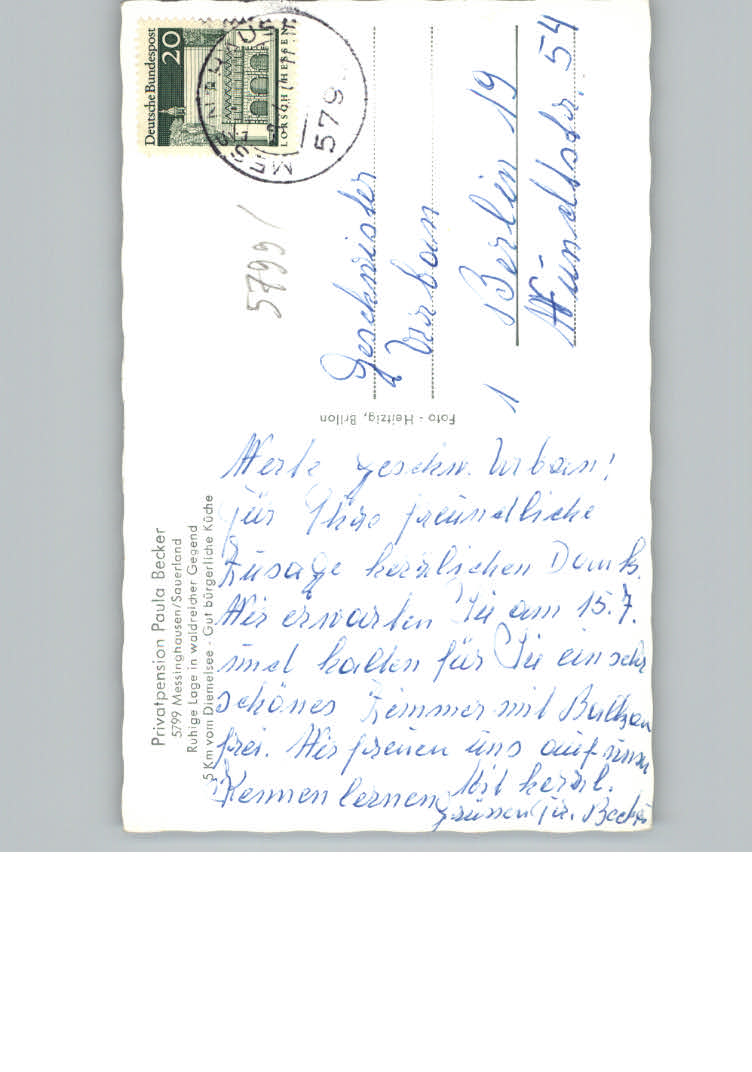 Privatpension Paula Becker
5799 Messinghausen/Sauerland
Ruhige Lage in waldreicher Gegend
5 Km vom Diemelsee - Gut bürgerliche Küche
Werte Geschw. Urban!
Für Ihre freundliche
Zusage herzlichen Dank.
Wir erwarten Sie am 15.7.
und halten für Sie ein sehr
schönes Zimmer mit Balkon
frei. Wir freuen uns auf
Kennenlernen Mit herzl.
Grüssen Becker
Foto - Heitzig, Brilon
Deutsche Bundespost
20
LORSCH/HESSEN
579
5799
Geschwister
Urban
1 Berlin 19
54